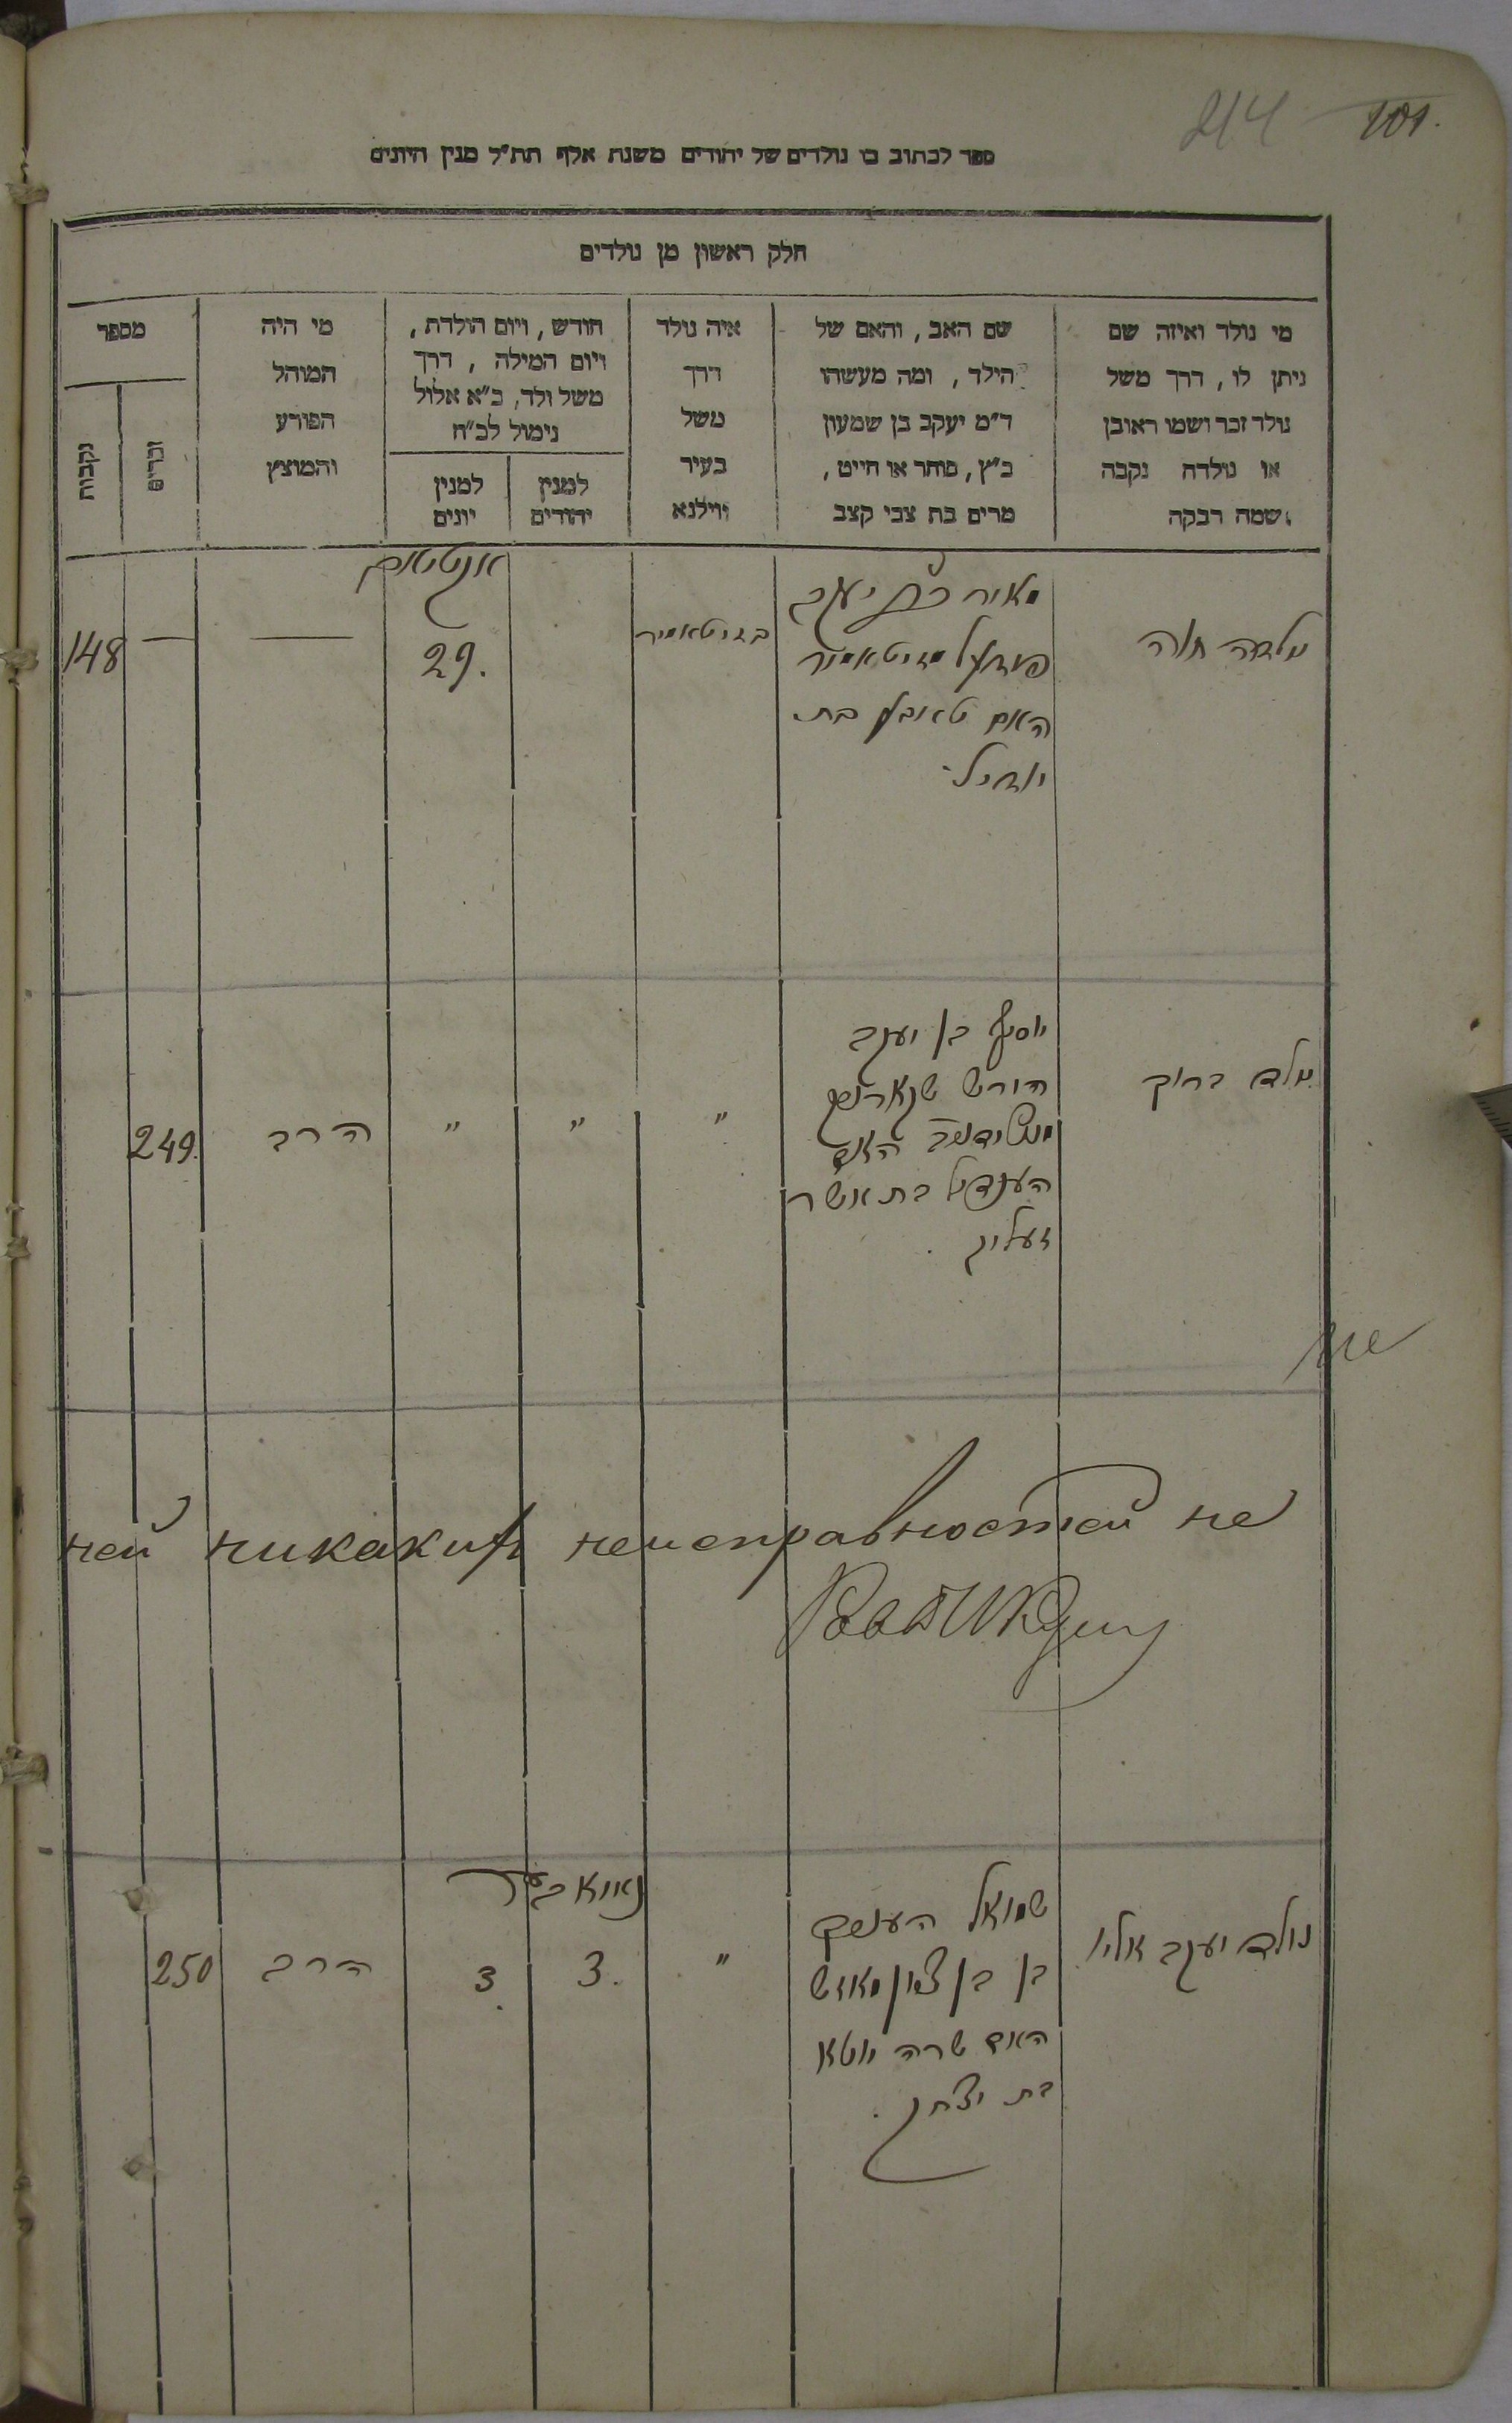 214 101.
ספר לכתוב בו נולדים של יהודים משנת אלף תת״ל מנין היונים
חלק ראשון מן נולדים
מי נולד ואיזה שם
ניתן לו, דרך משל
נולד זכר ושמו ראובן
או נולדה נקבה
ושמה רבקה
שם האב, והאם של
הילד, ומה מעשהו
ד״מ יעקב בן שמעון
כ״ץ, סוחר או חייט,
מרים בת צבי קצב
איה נולד
דרך
משל
בעיר
ווילנא
חודש, ויום הולדת,
ויום המילה, דרך
משל ולד, כ״א אלול
נימול לכ״ח
למנין
יהודים
למנין
יונים
מי היה
המוהל
הפורע
והמוצץ
מספר
זכרים
נקבות
נולדה חוה
מאיר יעקב
מזיטאמיר
האם טאובע בת
יחיאל
בזיטאמיר
29.
—
—
148
נולד ברוך
יוסף בן יעקב
הירש
האם
הענדיל בת אשר
זעליג.
"
"
"
הרב
249.
не
ней никакихъ неисправностей не
נולד יעקב אליו
שמואל
בן בן ציון
האם שרה יוטא
בת יצחק.
"
נאיאבער
3.
3.
הרב
250